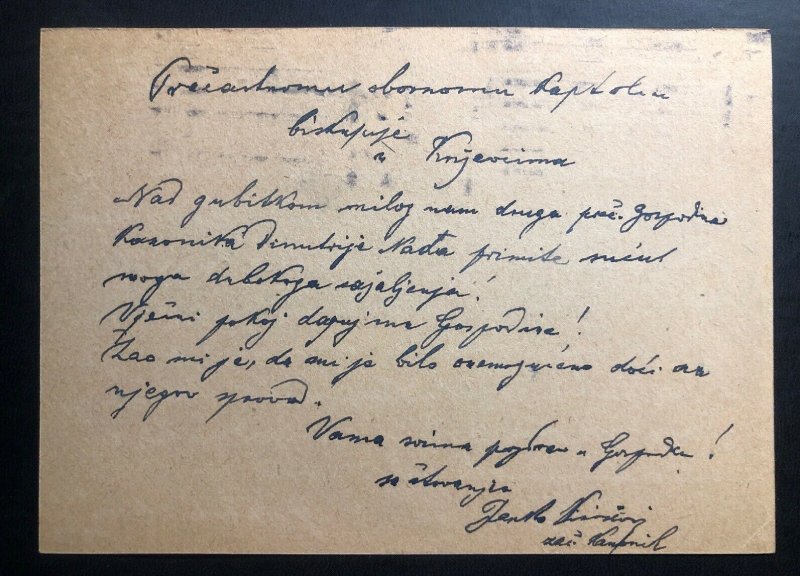 Prečasnomu zbornomu Kaptolu
biskupije
u Križevcima
Nad gubitkom milog nam druga preč. Gospodina
Kanonika Dimitrije Nađa primite sućut
moga dubokoga sažaljenja!
Vječni pokoj daruj mu Gospodine!
Žao mi je, da mi je bilo onemogućeno doći na
njegov sprovod.
Vama svima pozdrav u Gospodu!
sa štovanjem
Janko
zač. Kanonik